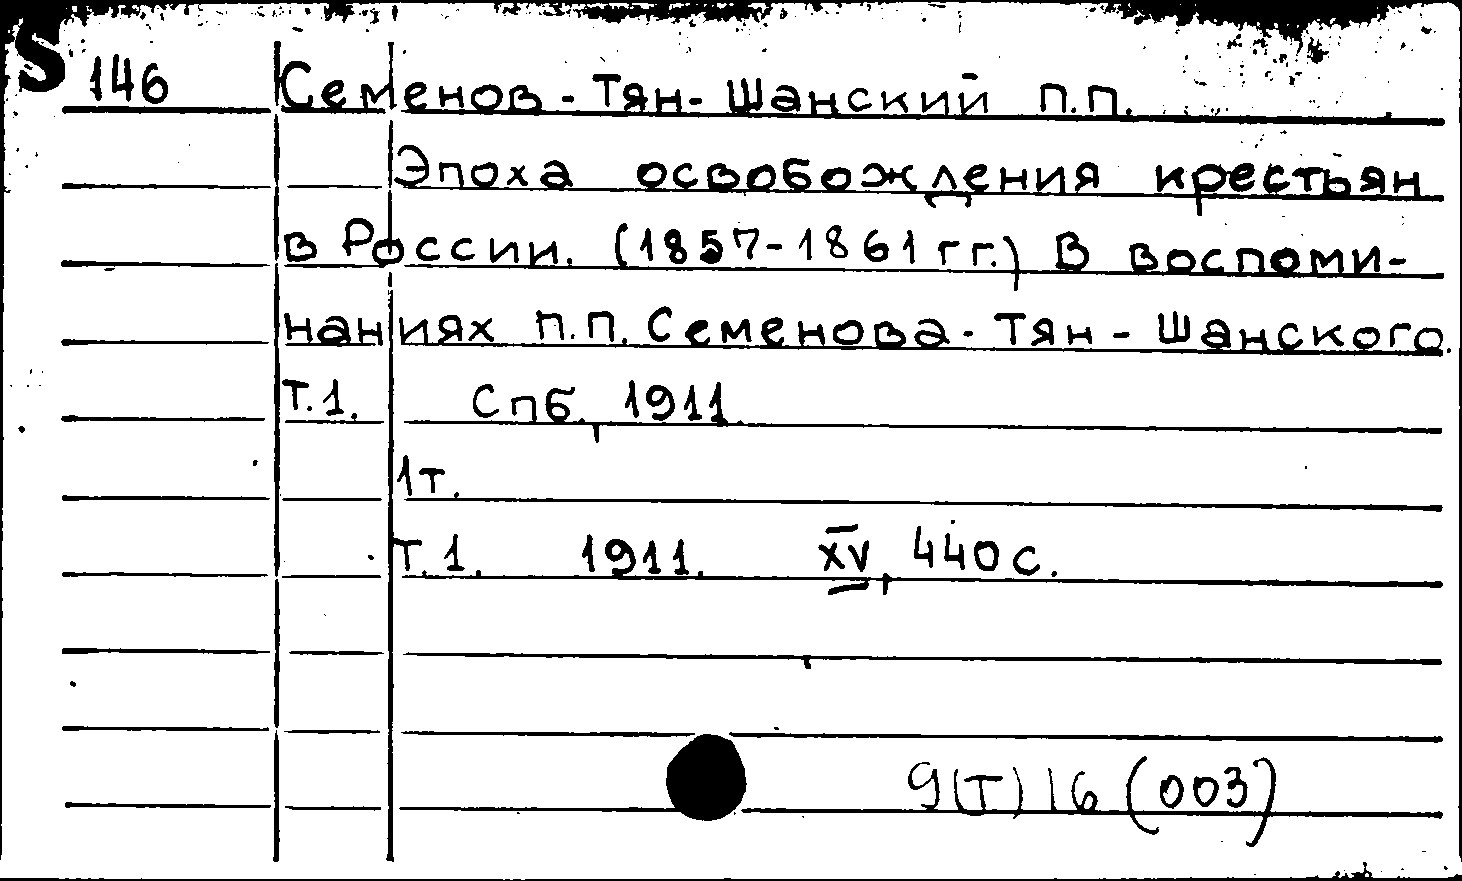 S
146 Семенов-Тян-Шанский П.П.
Эпоха освобождения крестьян
в России. (1857-1861 гг.) В воспоми-
наниях П.П. Семенова-Тян-Шанского.
Т.1. Спб., 1911.
1т.
Т.1. 1911. XV, 440 с.
9(Т)16(003)